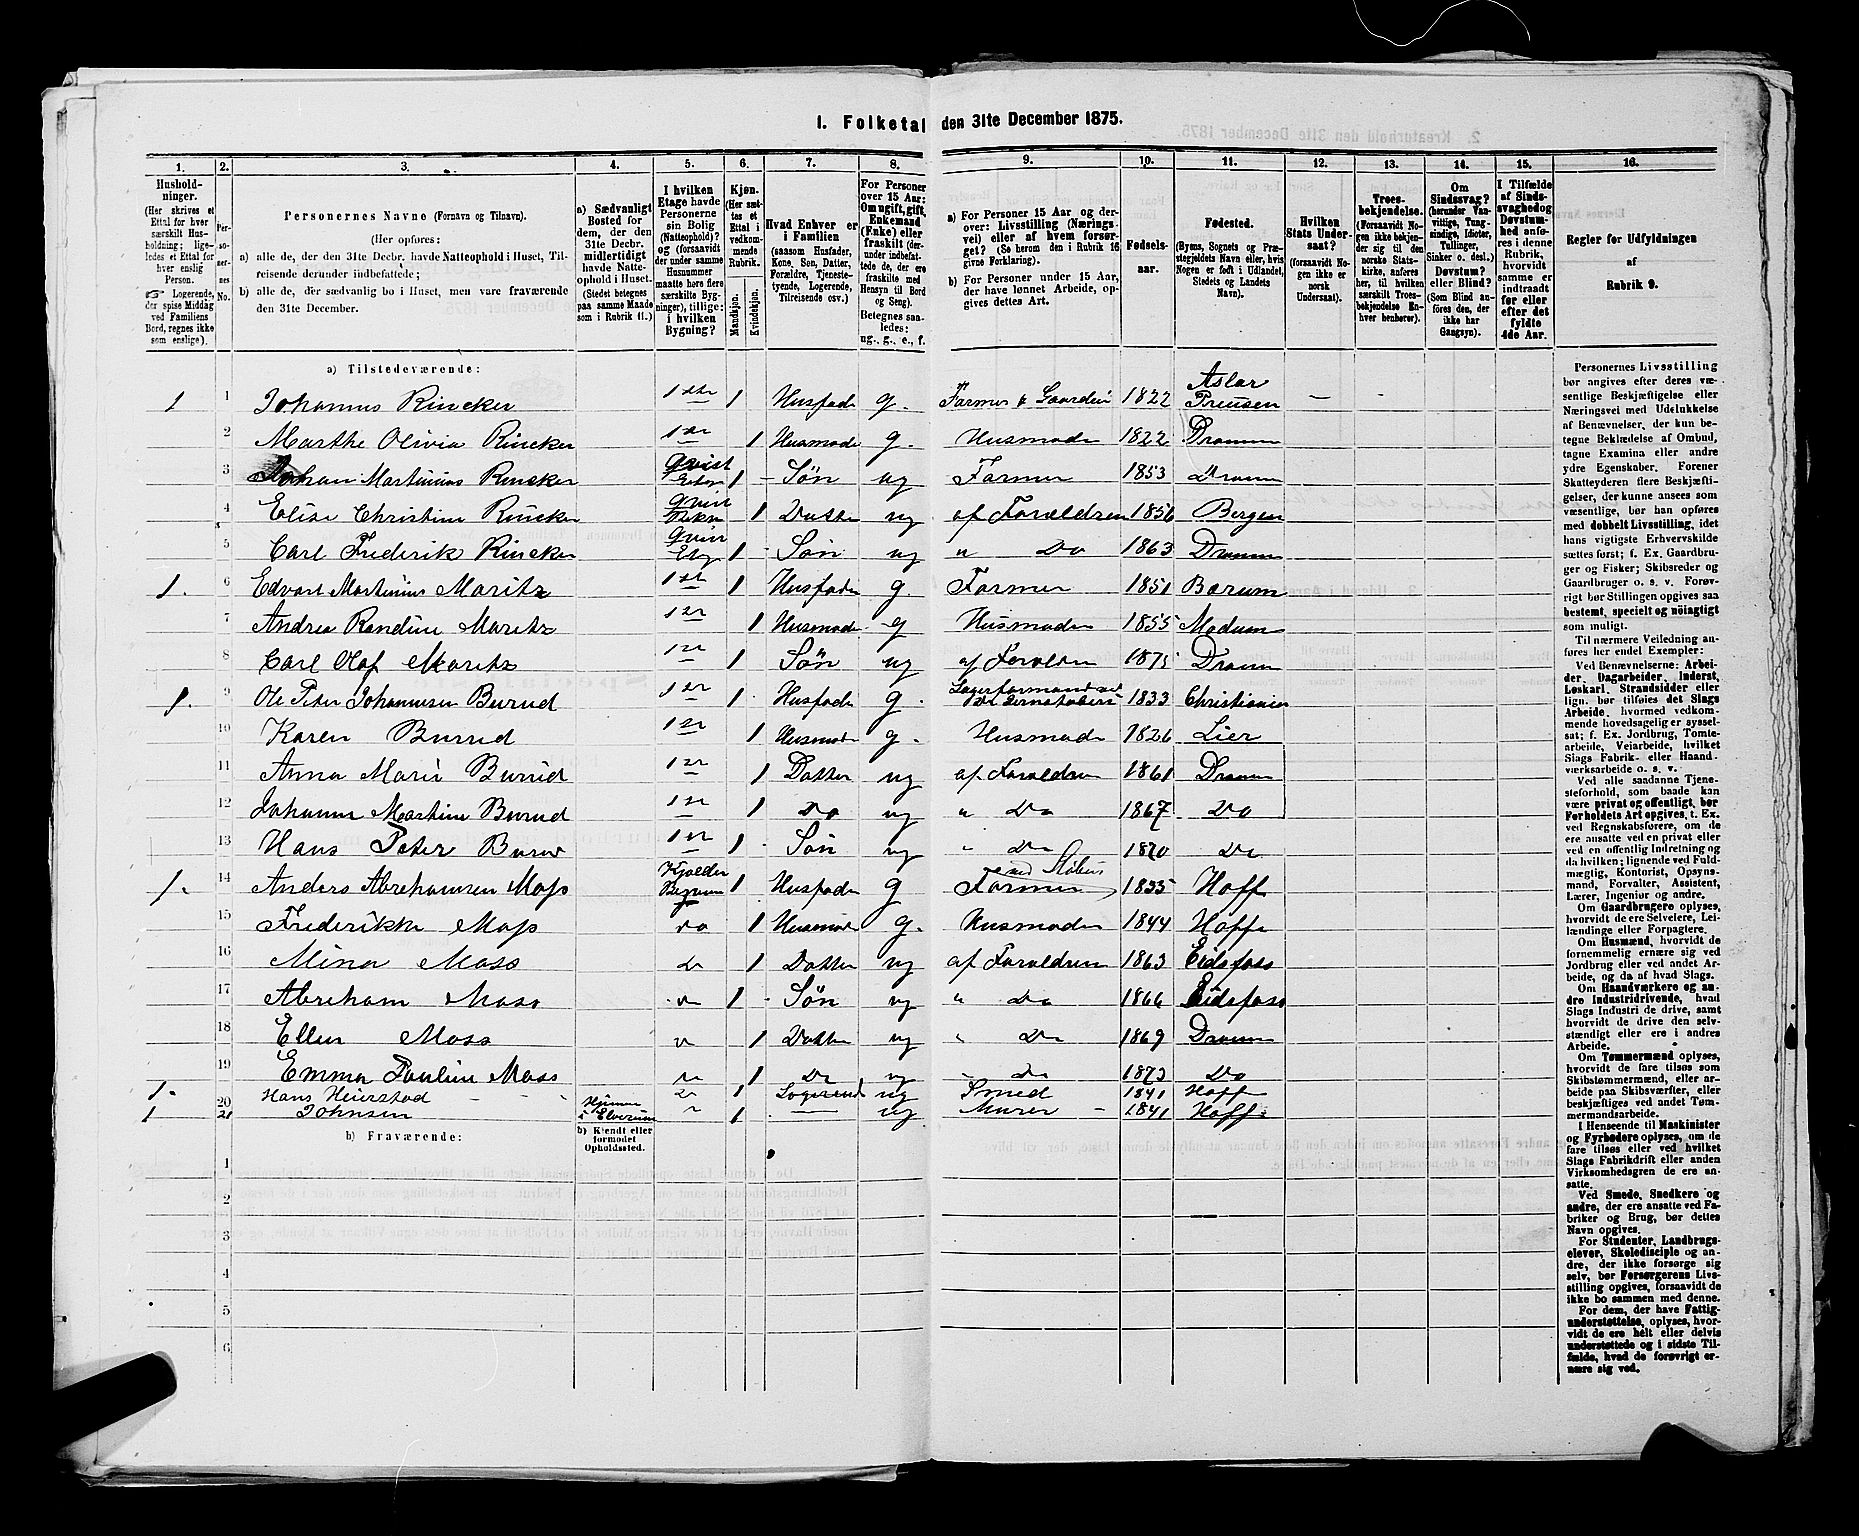 I. Folketal den 31te December 1875.
1. 2. 3. 4. 5. 6. 7. 8. 9. 10. 11. 12. 13. 14. 15. 16.
Husholdninger.
(Her skrives et Ettal for hver særskilt Husholdning; ligeledes et Ettal for hver enslig Person.
☞ Logerende, der spise Middag ved Familiens Bord, regnes ikke som enslige).
Personernes No.
Personernes Navne (Fornavn og Tilnavn).
(Her opføres:
a) alle de, der den 31te Decbr. havde Natteophold i Huset, Tilreisende derunder indbefattede;
b) alle de, der sædvanlig bo i Huset, men vare fraværende den 31te December.
a) Sædvanligt Bosted for dem, der den 31te Decbr. midlertidigt havde Natteophold i Huset.
(Stedet betegnes paa samme Maade som i Rubrik 11.)
I hvilken Etage havde Personerne sin Bolig (Natteophold)? og (forsaavidt der under samme Husnummer maatte høre flere særskilte Bygninger), tillige: i hvilken Bygning?
Kjøn.
(Her sættes et Ettal i vedkommende Rubrik.
Mandkjøn.
Kvindekjøn.
Hvad Enhver er i Familien
(saasom Husfader, Kone, Søn, Datter, Forældre, Tjenestetyende, Logerende, Tilreisende osv.)
For Personer over 15 Aar: Om ugift, gift, Enkemand (Enke) eller fraskilt (derunder indbefattede de, der ere fraskilte med Hensyn til Bord og Seng).
Betegnes saaledes: ug., g., e., f.
a) For Personer 15 Aar og derover: Livsstilling (Næringsvei) eller af hvem forsørget? (Se herom den i Rubrik 16 givne Forklaring).
b) For Personer under 15 Aar, der have lønnet Arbeide, opgives dettes Art.
Fødselsaar.
Fødested.
(Byens, Sognets og Præstegjeldets Navn eller, hvis Nogen er født i Udlandet, Stedets og Landets Navn).
Hvilken Stats Undersaat?
(forsaavidt Nogen ikke er norsk Undersaat).
Troesbekjendelse.
(Forsaavidt Nogen ikke bekjender sig til den norske Statskirke, anføres her, til hvilken særskilt Troesbekjendelse Enhver henhører).
Om Sindssvag? (herunder Vanvittige, Tungsindige, Idioter, Tullinger, Sinker o. desl.)
Døvstum? eller Blind?
(Som Blind anføres den, der ikke har Gangsyn).
I Tilfælde af Sindssvaghed og Døvstumhed anføres i denne Rubrik, hvorvidt samme er indtraadt før eller efter det fyldte 4de Aar.
Regler for Udfyldningen af Rubrik 9.
a) Tilstedeværende:
1 1 Johannes Rincker 1ste 1 Husfader g. Farmer & Gaardeir 1822 Aslar Preusen
2 Marthe Olivia Rincker 1ste 1 Husmoder g. Husmoder 1822 Dramm
3 Johan Martinius Rincker Qvist 1 Søn ug Farmer 1853 Dramm
4 Elise Christine Rincker Qvist 1 Datter ug af Forældren 1856 Bergen
5 Carl Frederik Rincker Qvist 1 Søn ug " Do 1863 Dramm
1. 6 Edvart Martinius Moritz 1ste 1 Husfader g Farmer 1851 Borum
7 Andrea Randine Moritz 1ste 1 Husmoder g Husmoder 1855 Modum
8 Carl Olaf Moritz 1ste 1 Søn ug af Forældren 1875 Dramm
1. 9 Ole Peter Johannesen Burud 1ste 1 Husfader g. 1833 Christiania
10 Karen Burud 1ste 1 Husmoder g. Husmoder 1826 Lier
11 Anna Marie Burud 1ste 1 Datter ug af Forældren 1861 Dramm
12 Johanne Martine Burud 1ste 1 Do ug " Do 1867 Do
13 Hans Peter Burud 1ste 1 Søn ug " Do 1870 Do
1. 14 Anders Abrahamsen Moss Kjelder 1 Husfader g Farmer ved Støberi 1835 Hoff
15 Frederikke Moss do 1 Husmoder g. Husmoder 1844 Hoff
16 Mina Moss do 1 Datter ug af Forældren 1863 Eidsfoss
17 Abraham Moss do 1 Søn ug " Do 1866 Eidsfoss
18 Ellen Moss do 1 Datter ug " Do 1869 Dramm
19 Emma Pauline Moss do 1 Do ug " do 1873 Do
1. 20 Hans Heierstad 1 Logerend ug Smed 1841 Hoff
1 21 Johnsen i Elverum 1 ug Murer 1841 Hoff
b) Fraværende:
b) Kjendt eller formodet Opholdssted.
1
2
3
4
5
6
Personernes Livsstilling bør angives efter deres væsentlige Beskjæftigelse eller Næringsvei med Udelukkelse af Benævnelser, der kun betegne Beklædelse af Ombud, tagne Examina eller andre ydre Egenskaber. Forener Skatteyderen flere Beskjæftigelser, der kunne ansees som væsentlige, bør han opføres med dobbelt Livsstilling, idet hans vigtigste Erhvervskilde sættes først; f. Ex. Gaardbruger og Fisker; Skibsreder og Gaardbruger o. s. v. Forøvrigt bør Stillingen opgives saa bestemt, specielt og nøiagtigt som muligt.
Til nærmere Veiledning anføres her endel Exempler:
Ved Benævnelserne: Arbeider, Dagarbeider, Inderst, Løskarl, Strandsidder eller lign. bør tilføies det Slags Arbeide, hvormed vedkommende hovedsagelig er sysselsat; f. Ex. Jordbrug, Tomtearbeide, Veiarbeide, hvilket Slags Fabrik- eller Haandværksarbeide o. s. v.
Ved alle saadanne Tjenesteforhold, som baade kan være privat og offentligt, bør Forholdets Art opgives, t. Ex. ved Regnskabsførere, om de ere ansatte ved en privat eller ved en offentlig Indretning og da hvilken; lignende ved Fuldmægtig, Kontorist, Opsynsmand, Forvalter, Assistent, Lærer, Ingeniør og andre.
Om Gaardbrugere oplyses, hvorvidt de ere Selveiere, Leilændinge eller Forpagtere.
Om Husmænd, hvorvidt de fornemmelig ernære sig ved Jordbrug eller ved andet Arbeide, og da af hvad Slags.
Om Haandværkere og andre Industridrivende, hvad Slags Industri de drive, samt hvorvidt de drive den selvstændigt eller ere i andres Arbeide.
Om Tømmermænd oplyses, hvorvidt de fare tilsøs som Skibstømmermænd, eller arbeide paa Skibsværfter, eller beskjæftiges ved andet Tømmermandsarbeide.
I Henseende til Maskinister og Fyrbødere oplyses, om de fare tilsøs eller ved hvilket Slags Fabrikdrift eller anden Virksomhedsgren de ere ansatte.
Ved Smede, Snedkere og andre, der ere ansatte ved Fabriker og Brug, bør dettes Navn opgives.
For Studenter, Landbrugselever, Skoledisciple og andre, der ikke forsørge sig selv, bør Forsørgerens Livsstilling opgives, forsaavidt de ikke bo sammen med denne.
For dem, der have Fattigunderstøttelse, oplyses, hvorvidt de ere helt eller delvis understøttede og i sidste Tilfælde, hvad de forøvrigt ernære sig ved.